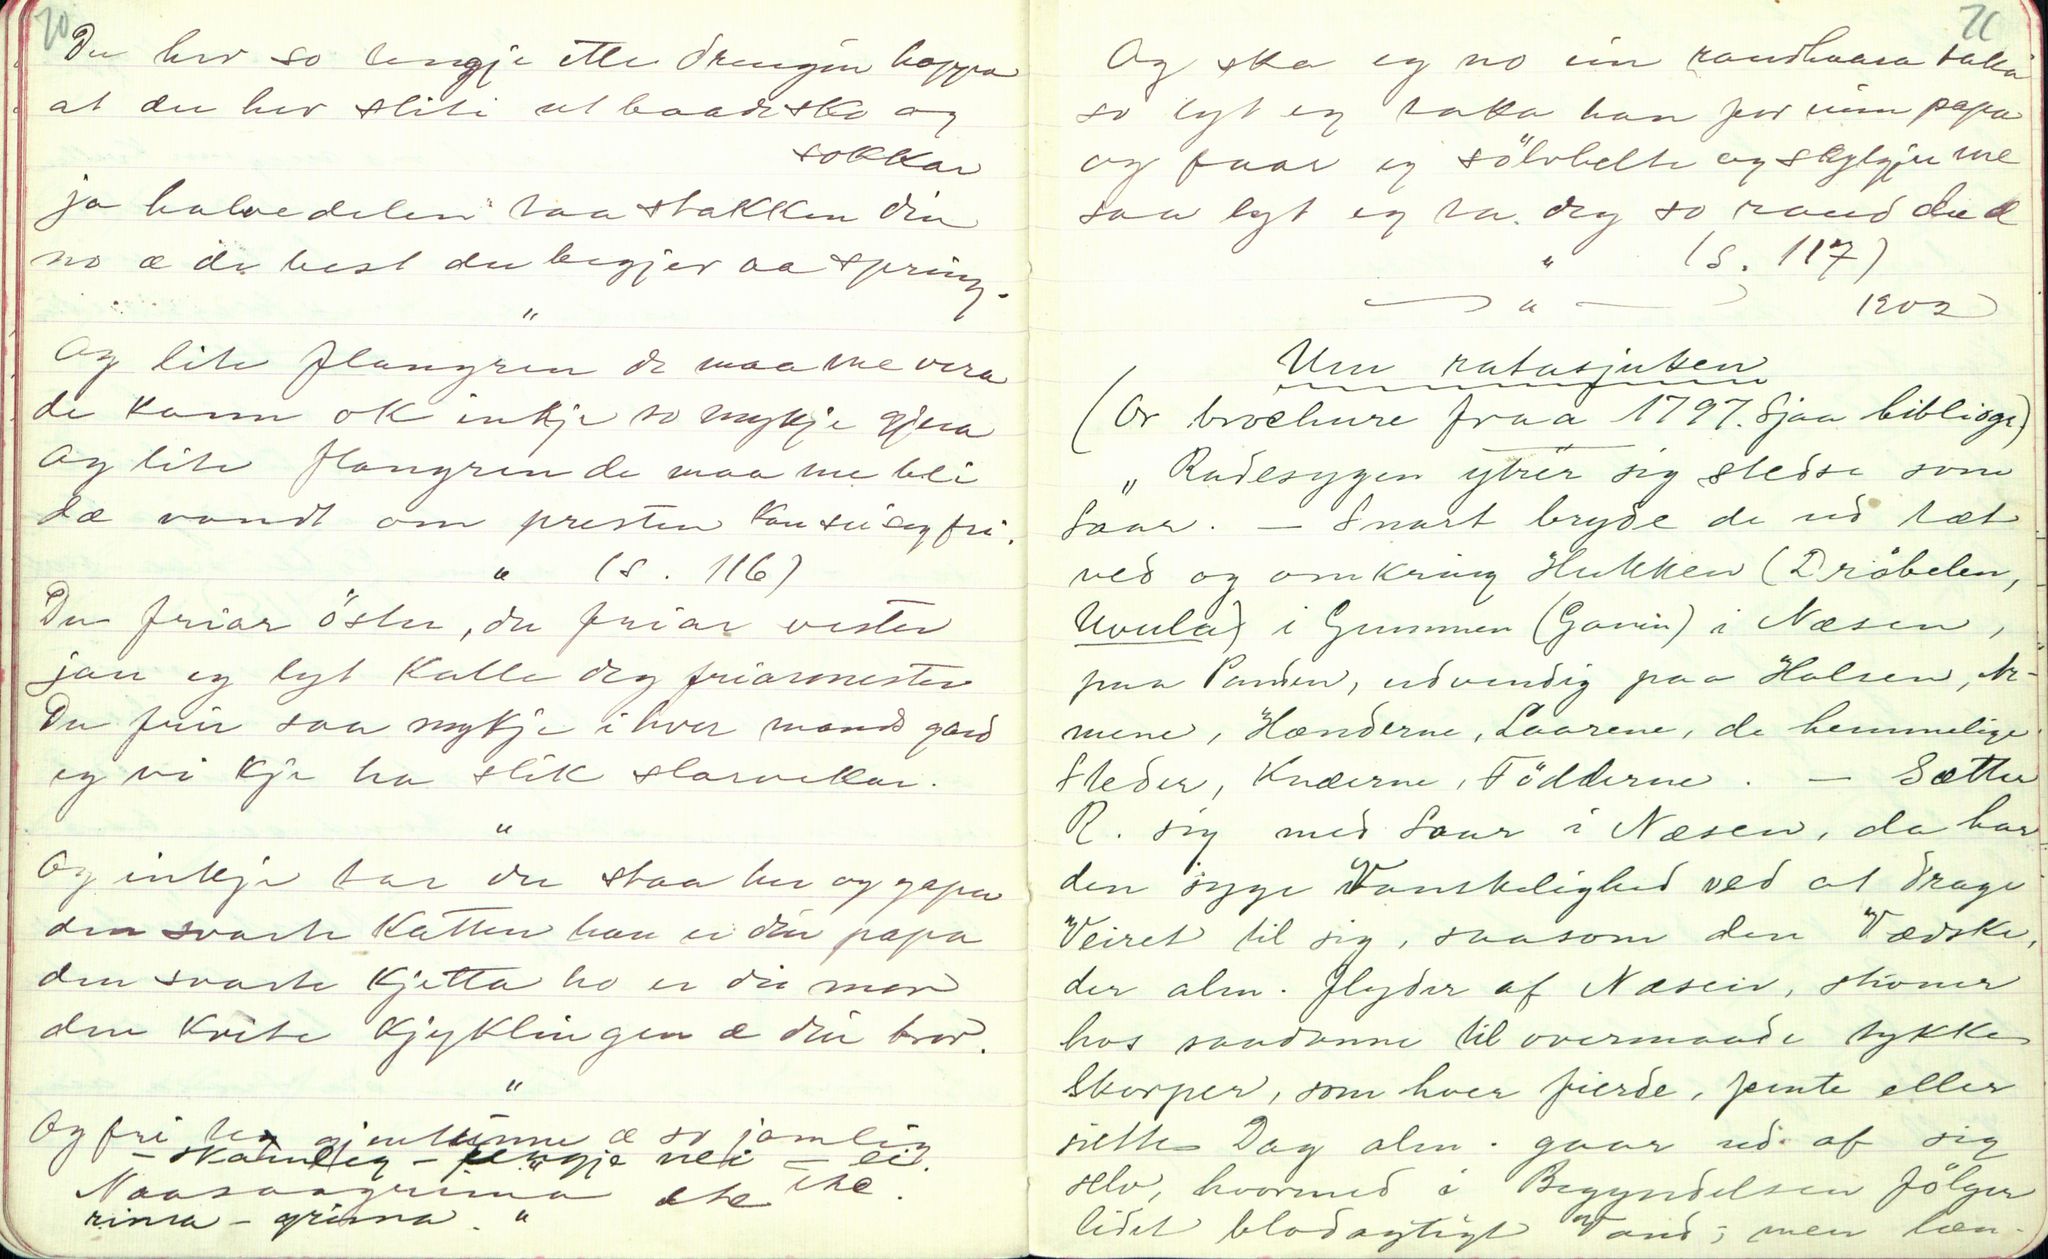 70
Du hev so lengje ette drengjin hoppa
at du hev sliti ut baade sko og
sokkar
ja halvedelen taa stakken din
no æ de best du begjev aa spring.
"
Og lite flangren de maa me vera
de kann ok inkje so mykje gjera
Og lite flangren de maa me bli
dæ vondt om presten kan sei seg fri.
" (s. 116)
Du friar öster, du friar vester
jau eg lyt kalle deg friarmester
Du frir saa mykje i hver mands gard
eg vi kje ha slik slarvekar.
"
Og inkje tar du staa her og gapa
den svarte katten han er din papa
den svarte kjetta ho er di mor
den kvite kjyklingen æ din bror.
"
Og fri te gjentunne æ so jamlig
– skamleg – lengje nei – ei.
Naasaagrima ete ite.
rima – grima. "
71
Og ska eg no ein raudhaara taka
so lyt eg taka han for min papa
og faar eg sölvbelte og sylgju me
saa lyt eg ta deg so raud du æ
" (s. 117)
— " — 1902
Um ratasjuken
(Or brochure fraa 1797. Sjaa bibliogr)
„ Radesygen ytrer sig stedse som
Saar. — Snart bryde de ud tæt
ved og omkring Hukken (Dröbelen,
Uvula) i Gummen (Ganen) i Næsen,
paa Panden, udvendig paa Halsen, Ar-
mene, Hænderne, Laarene, de hemmelige
Steder, Knæerne, Födderne. — Sætter
R. sig med Saar i Næsen, da har
den syge Vanskelighed ved at drage
Veiret til sig, saasom den Vædske,
der alm. flyder af Næsen, stivner
hos saadanne til overmaade tykke
Skorper, som hver fierde, femte eller
siette Dag alm. gaar ud af sig
selv, hvormed i Begyndelsen fölger
lidet blodagtigt Vand; men læn-